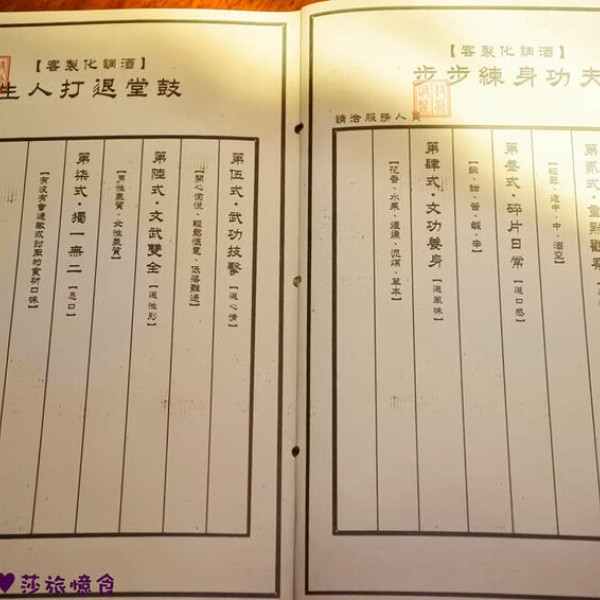 【客製化調酒】
步步練身功夫
請洽服務人員
第貳式・重點觀察
第叁式・碎片日常【選口感】
【酸、甜、苦、鹹、辛】
第肆式・文功養身【選風味】
【花香、水果、煙燻、泥煤、草本】
【客製化調酒】
生人打退堂鼓
第伍式・武功技擊【選心情】
【開心愉悅、輕鬆愜意、低落難過】
第陸式・文武雙全【選性別】
【男性氣質、女性氣質】
第柒式・獨一無二【忌口】
【有沒有會過敏或討厭的食材口味】
莎旅憶食